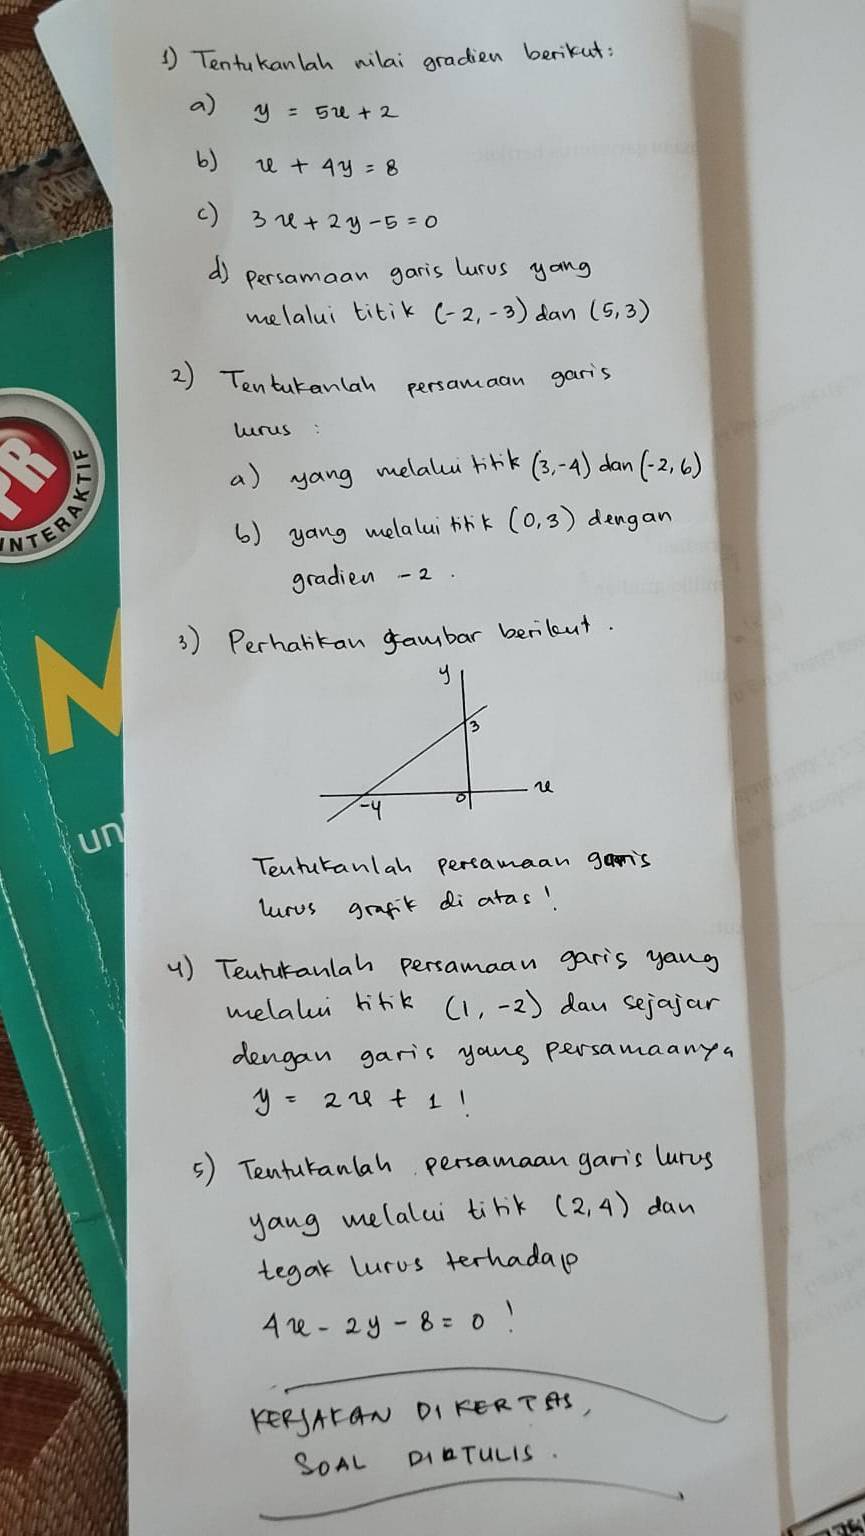 1) Tentukanlah nilai gradien berikut:
a) y = 5x + 2
b) x + 4y = 8
c) 3x + 2y - 5 = 0
d) persamaan garis lurus yang
melalui titik (-2, -3) dan (5, 3)
2) Tentukanlah persamaan garis
lurus :
a) yang melalui titik (3, -4) dan (-2, 6)
b) yang melalui titik (0, 3) dengan
gradien -2.
3) Perhatikan gambar berikut.
y
3
-4
0
x
Tentukanlah persamaan garis
lurus grafik di atas!
4) Tentukanlah persamaan garis yang
melalui titik (1, -2) dan sejajar
dengan garis yang persamaanya
y = 2x + 1 !
5) Tentukanlah persamaan garis lurus
yang melalui titik (2, 4) dan
tegak lurus terhadap
4x - 2y - 8 = 0 !
KERJAKAN DI KERTAS,
SOAL DITULIS.
PR
INTERAKTIF
M
un